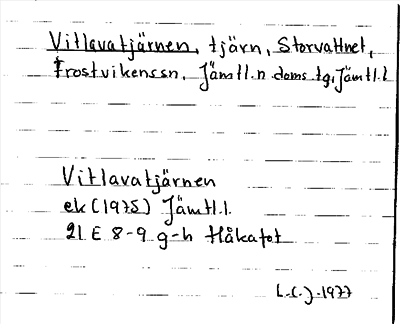 Vitlavatjärnen, tjärn, Storvattnet,
Frostvikenssn, Jämtl.n doms tg, Jämtl.l
Vitlavatjärnen
ek (1975) Jämtl.l.
21 E 8-9 g-h Håkafot
L.C.J. 1977